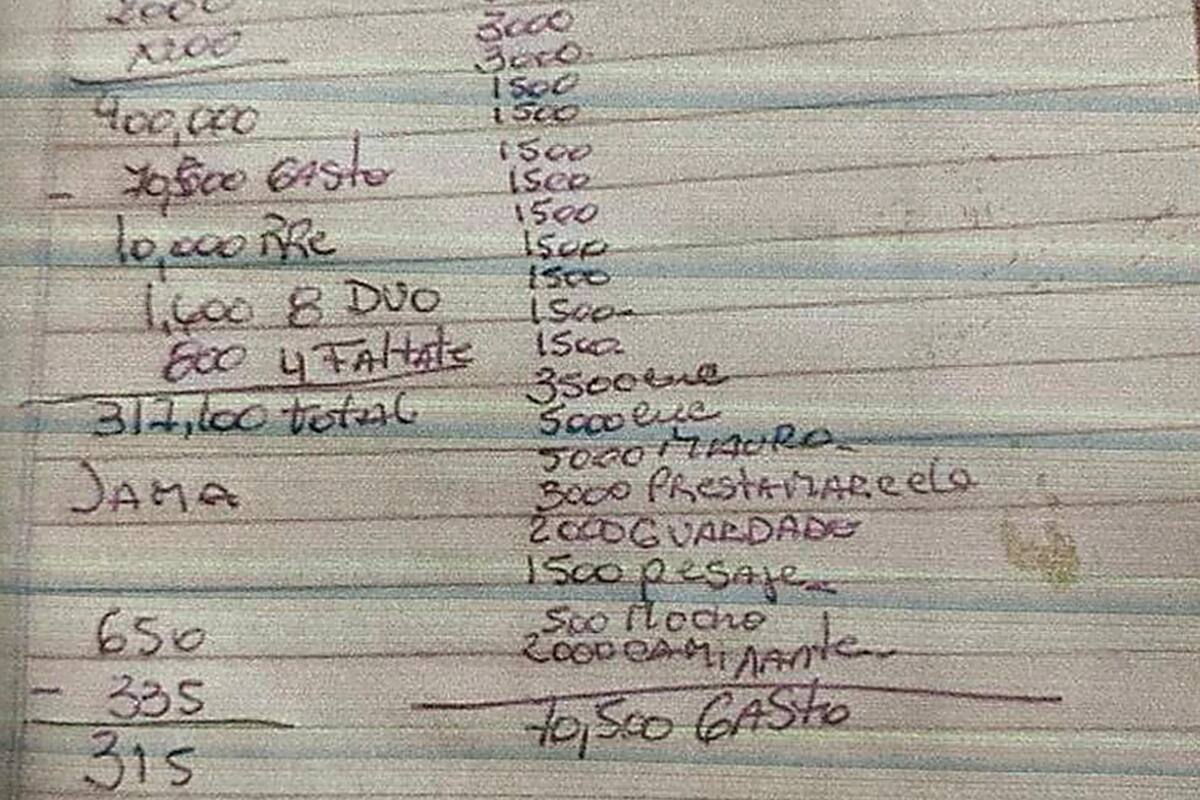 2000
x200
400,000
- 70,500 GASto
10,000 RRe
1,600 8 DUO
800 4 FAltAte
317,100 totAL
JAMA
650
- 335
315
3000
3000
1500
1500
1500
1500
1500
1500
1500
1500
1500
3500 eue
5000 eue
5000 MAURO
3000 PRestaMARcelo
2000 GUARDADE
1500 pesaje
500 Mocho
2000 CAMiNANte
70,500 GASto